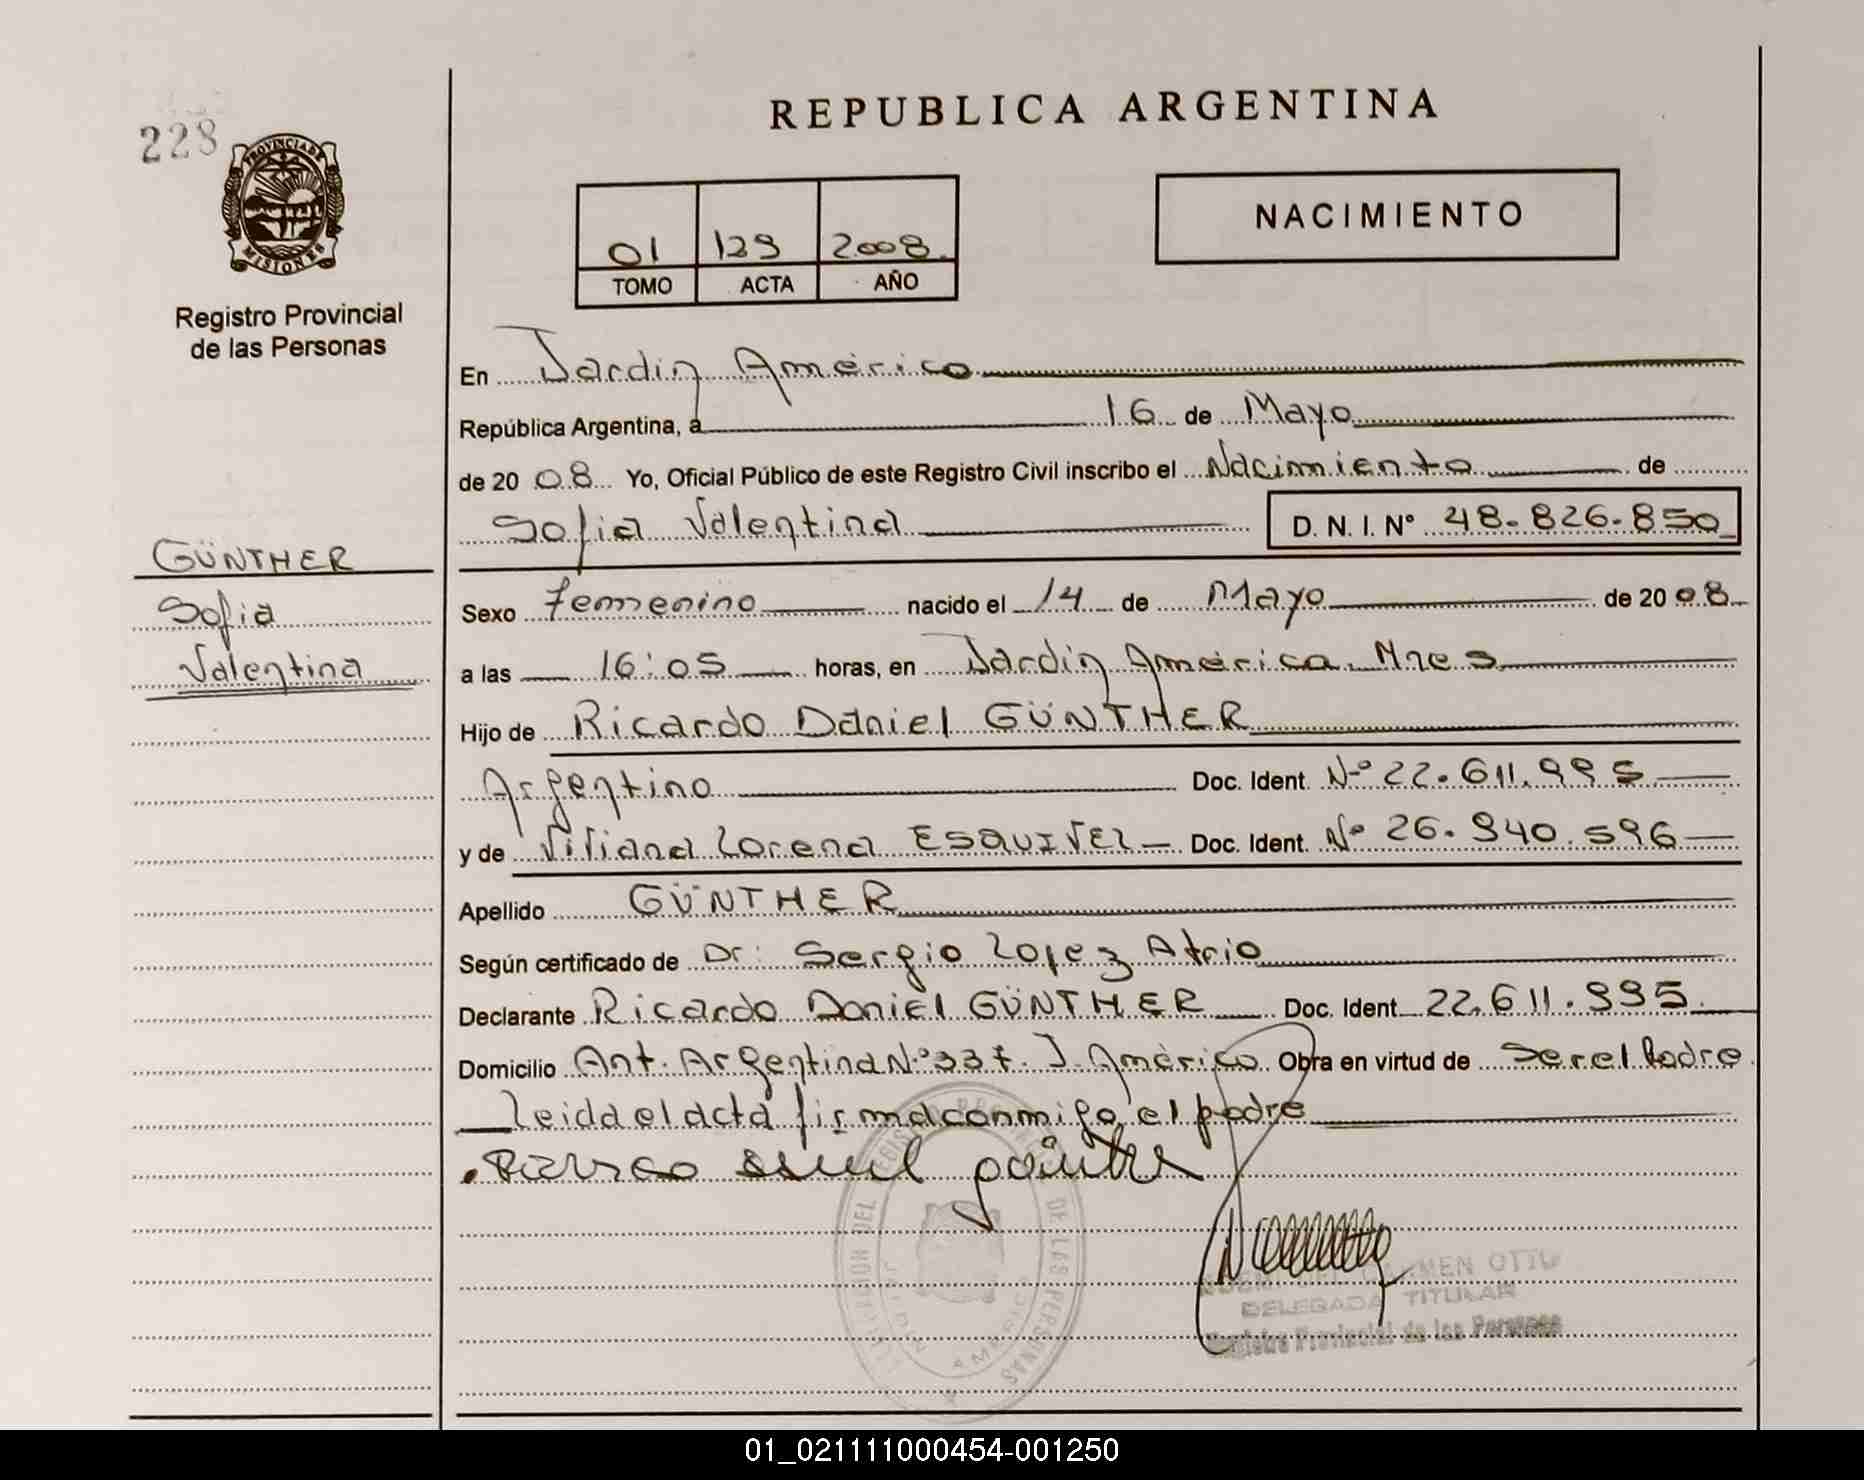 REPUBLICA ARGENTINA
228
PROVINCIA DE
MISIONES
Registro Provincial
de las Personas
01 129 2008.
TOMO ACTA AÑO
NACIMIENTO
En Jardín América
República Argentina, a 16 de Mayo
de 2008 Yo, Oficial Público de este Registro Civil inscribo el Nacimiento de
Sofia Valentina D. N. I. N° 48.826.850
GÜNTHER
Sofia
Valentina
Sexo Femenino nacido el 14 de Mayo de 2008
a las 16:05 horas, en Jardín América. Mnes
Hijo de Ricardo Daniel GÜNTHER
Argentino Doc. Ident. N° 22.611.995
y de Viviana Lorena ESQUIVEL Doc. Ident. N° 26.940.596
Apellido GÜNTHER
Según certificado de Dr: Sergio Lopez Atrio
Declarante Ricardo Daniel GÜNTHER Doc. Ident 22.611.995.
Domicilio Ant. Argentina N° 337. J. América. Obra en virtud de Ser el Padre.
Leida el acta firma conmigo el padre
DE LAS PERSONAS
DELEGADA TITULAR
Registro Provincial de las Personas
01_021111000454-001250